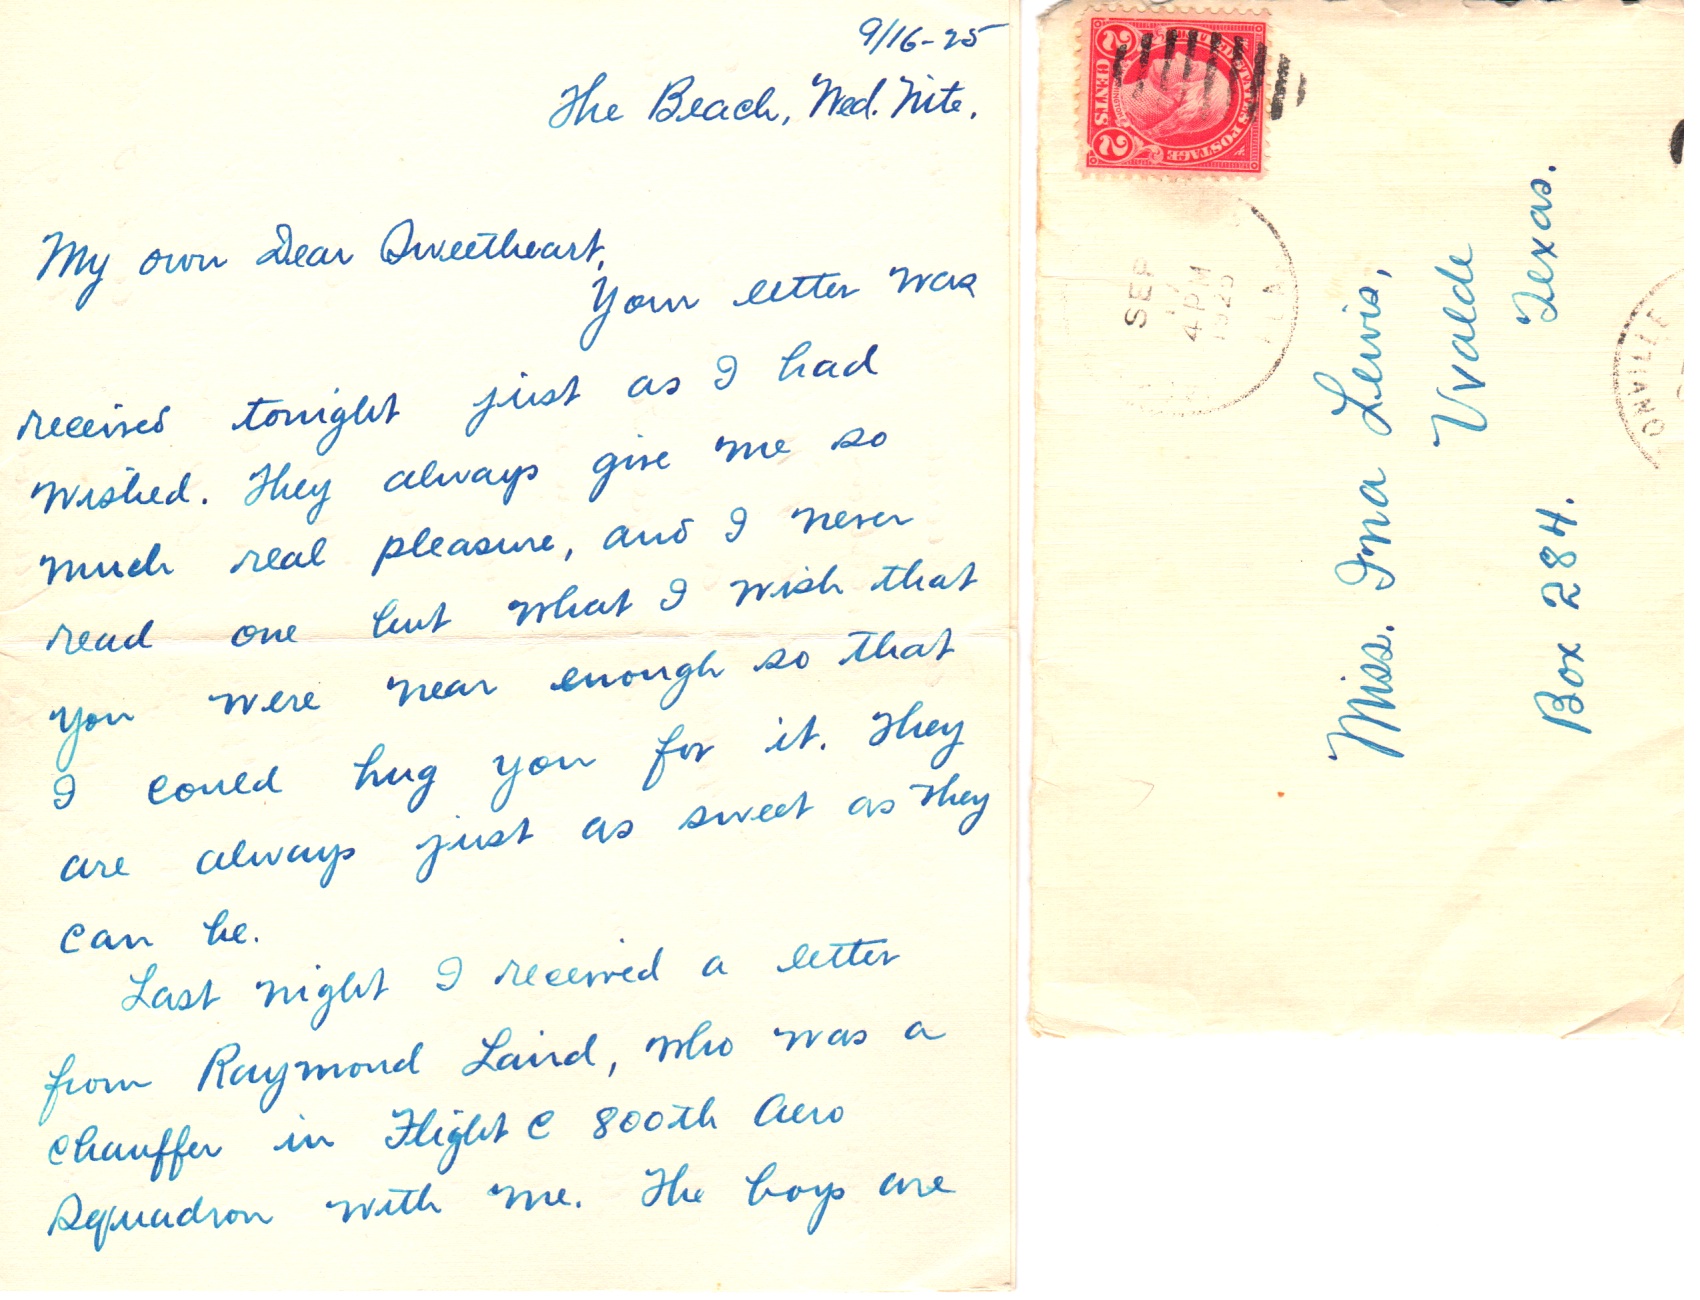 9/16-25
The Beach, Wed. Nite.
My own Dear Sweetheart,
Your letter was
received tonight just as I had
wished. They always give me so
much real pleasure, and I never
read one but what I wish that
you were near enough so that
I could hug you for it. They
are always just as sweet as they
can be.
Last night I received a letter
from Raymond Laird, who was a
chauffer in Flight C 800th Aero
Squadron with me. The boys are
UNITED STATES POSTAGE
2 CENTS 2
SEP
17
4 PM
1925
FLA.
ONVILLE
Miss. Ina Lewis,
Uvalde
Box 284. Texas.